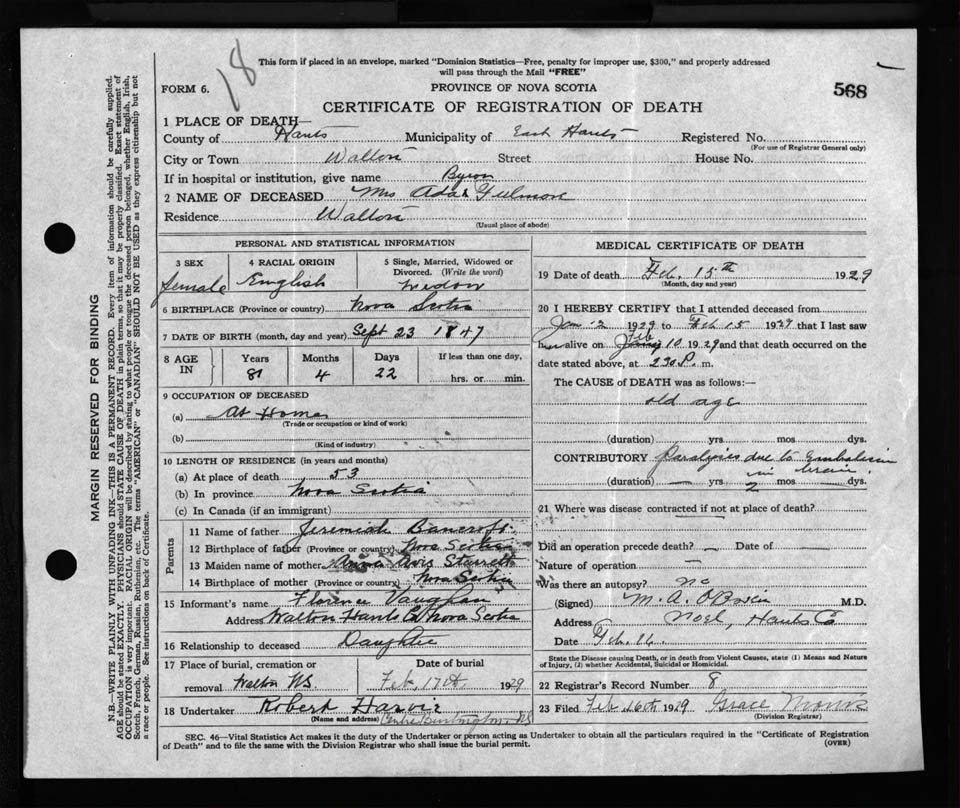 18
This form if placed in an envelope, marked "Dominion Statistics—Free, penalty for improper use, $300," and properly addressed
will pass through the Mail "FREE"
FORM 6.
PROVINCE OF NOVA SCOTIA
568
CERTIFICATE OF REGISTRATION OF DEATH
1 PLACE OF DEATH—
County of Hants Municipality of East Hants Registered No.
(For use of Registrar General only)
City or Town Walton Street House No.
If in hospital or institution, give name
Byron
2 NAME OF DECEASED Mrs Ada Gilmore
Residence Walton
(Usual place of abode)
PERSONAL AND STATISTICAL INFORMATION
3 SEX 4 RACIAL ORIGIN 5 Single, Married, Widowed or
Divorced. (Write the word)
female English widow
6 BIRTHPLACE (Province or country) Nova Scotia
7 DATE OF BIRTH (month, day and year) Sept 23 1847
8 AGE IN Years Months Days If less than one day,
81 4 22 hrs. or min.
9 OCCUPATION OF DECEASED
(a) At Home
(Trade or occupation or kind of work)
(b)
(Kind of industry)
10 LENGTH OF RESIDENCE (in years and months)
(a) At place of death 53
(b) In province Nova Scotia
(c) In Canada (if an immigrant)
Parents
11 Name of father Jeremiah Bancroft
12 Birthplace of father (Province or country) Nova Scotia
13 Maiden name of mother Anna Starrett
14 Birthplace of mother (Province or country) Nova Scotia
15 Informant's name Florence Vaughan
Address Walton Hants Co Nova Scotia
16 Relationship to deceased Daughter
17 Place of burial, cremation or Date of burial
removal Walton NS Feb. 17th 1929
18 Undertaker Robert Harvie
(Name and address) Centre Burlington, NS
MEDICAL CERTIFICATE OF DEATH
19 Date of death Feb. 15th 1929
(Month, day and year)
20 I HEREBY CERTIFY that I attended deceased from
Jan 2 1929 to Feb 15 1929 that I last saw
her alive on Feb 10 1929 and that death occurred on the
date stated above, at 2 30 P. m.
The CAUSE of DEATH was as follows:—
old age
(duration) yrs mos dys.
CONTRIBUTORY Paralysis due to Embolism
in brain
(duration) — yrs. 2 mos — dys.
21 Where was disease contracted if not at place of death?
Did an operation precede death? — Date of —
Nature of operation —
Was there an autopsy? No
(Signed) M. A. O'Brien M.D.
Address Noel, Hants Co
Date Feb. 16.
State the Disease causing Death, or in death from Violent Causes, state (1) Means and Nature
of Injury, (2) whether Accidental, Suicidal or Homicidal.
22 Registrar's Record Number 8
23 Filed Feb 26th 1929 Grace
(Division Registrar)
SEC. 46—Vital Statistics Act makes it the duty of the Undertaker or person acting as Undertaker to obtain all the particulars required in the "Certificate of Registration
of Death" and to file the same with the Division Registrar who shall issue the burial permit.
(OVER)
MARGIN RESERVED FOR BINDING
N.B.—WRITE PLAINLY WITH UNFADING INK—THIS IS A PERMANENT RECORD. Every item of information should be carefully supplied.
AGE should be stated EXACTLY. PHYSICIANS should STATE CAUSE OF DEATH in plain terms, so that it may be properly classified. Exact statement of
OCCUPATION is very important. RACIAL ORIGIN will be described by stating to what people or tongue the deceased person belonged, whether English, Irish,
Scotch, French, German, Russian, Ruthenian, etc. The terms "AMERICAN" or "CANADIAN" SHOULD NOT BE USED as they express citizenship but not
a race or people. See instructions on back of Certificate.